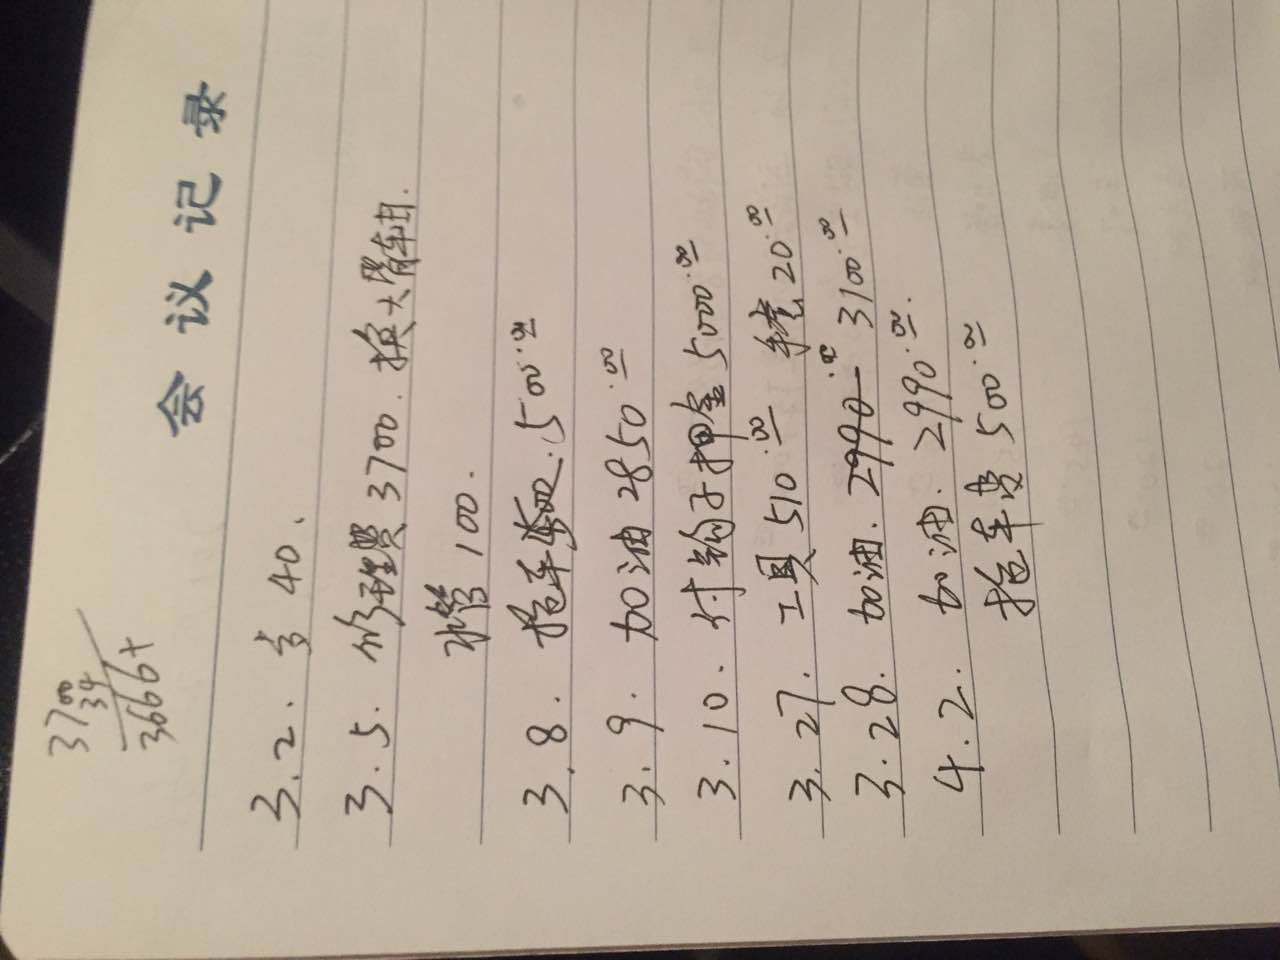 3700
34
3666+
会议记录
3.2. 40.
3.5. 修理费3700. 换大臂车由.
水管100.
3.8. 拖车 .500.00
3.9. 加油2850.00
3.10. 付钩子押金5000.00
3.27. 工具510.00 手套20.00
3.28. 加油. 2990.00 3100.00
4.2. 加油. 2990.00.
拖车费500.00